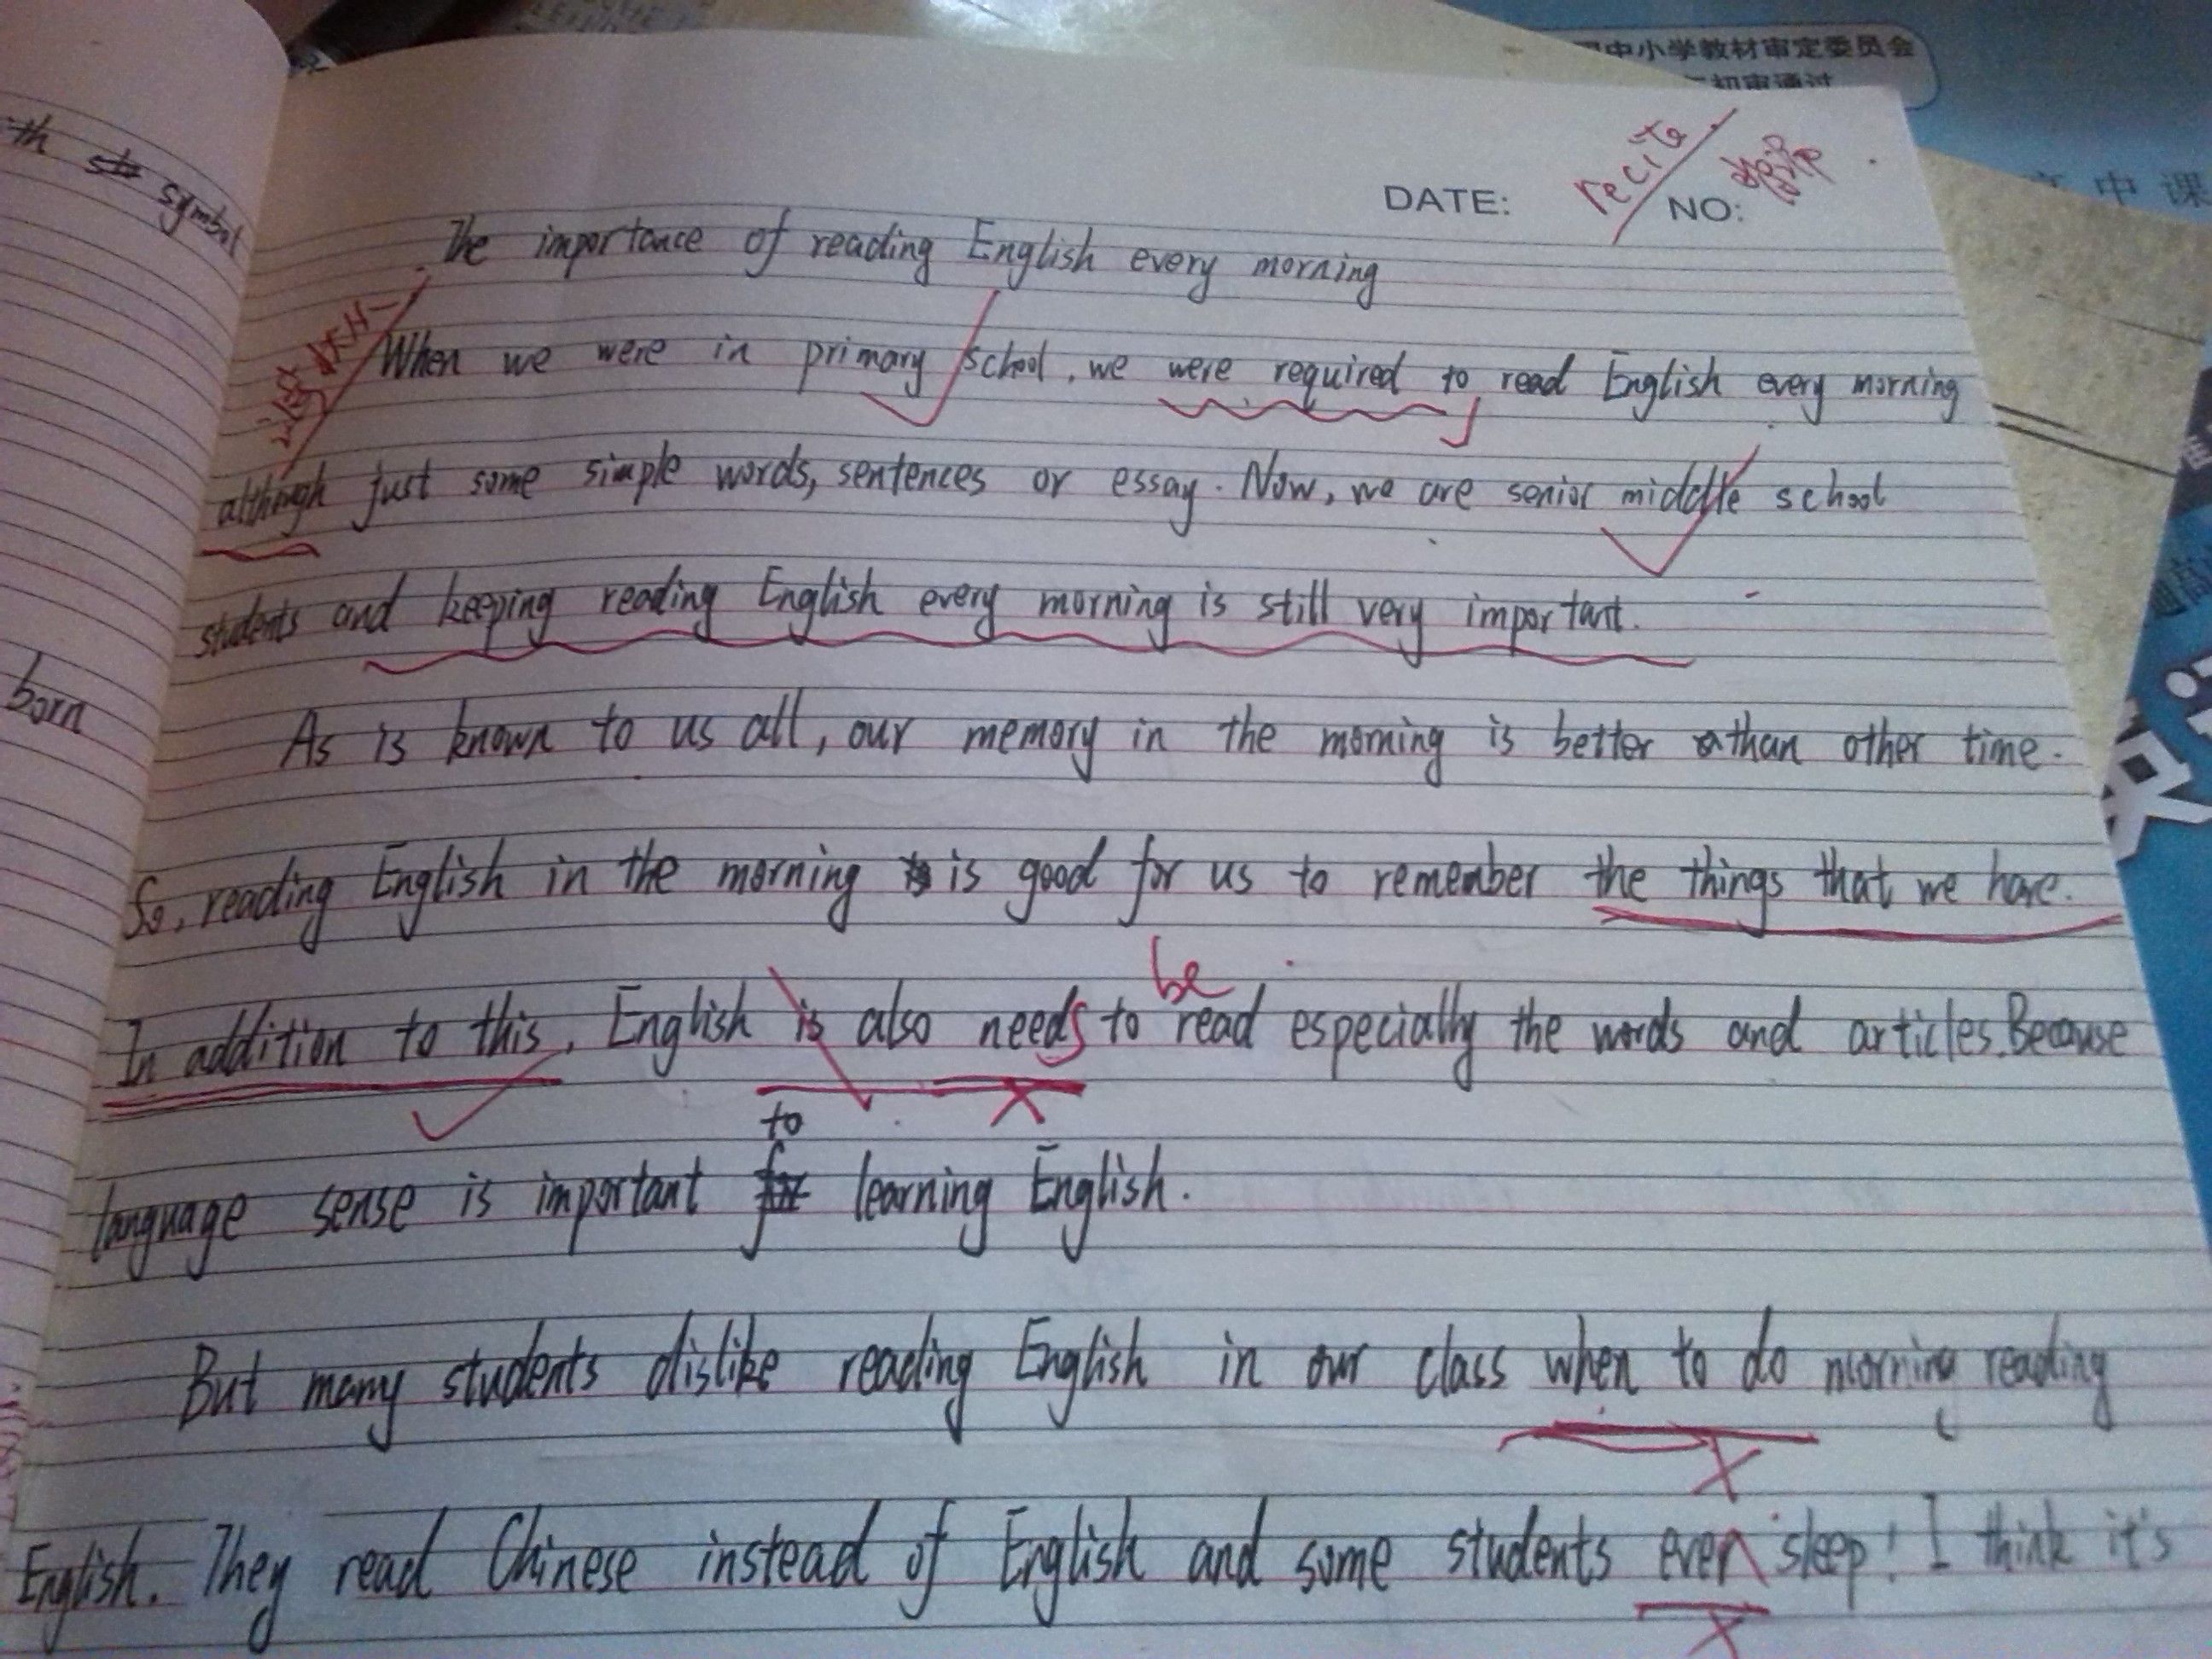 中小学教材审定委员会
初审通过
高中课
symbol
born
DATE:
NO:
recite
The importance of reading English every morning
When we were in primary school, we were required to read English every morning
although just some simple words, sentences or essay. Now, we are senior middle school
students and keeping reading English every morning is still very important.
As is known to us all, our memory in the morning is better than other time.
So, reading English in the morning is good for us to remember the things that we have.
be
In addition to this, English is also needs to read especially the words and articles. Because
to
language sense is important for learning English.
But many students dislike reading English in our class when to do morning reading
English. They read Chinese instead of English and some students even sleep! I think it's